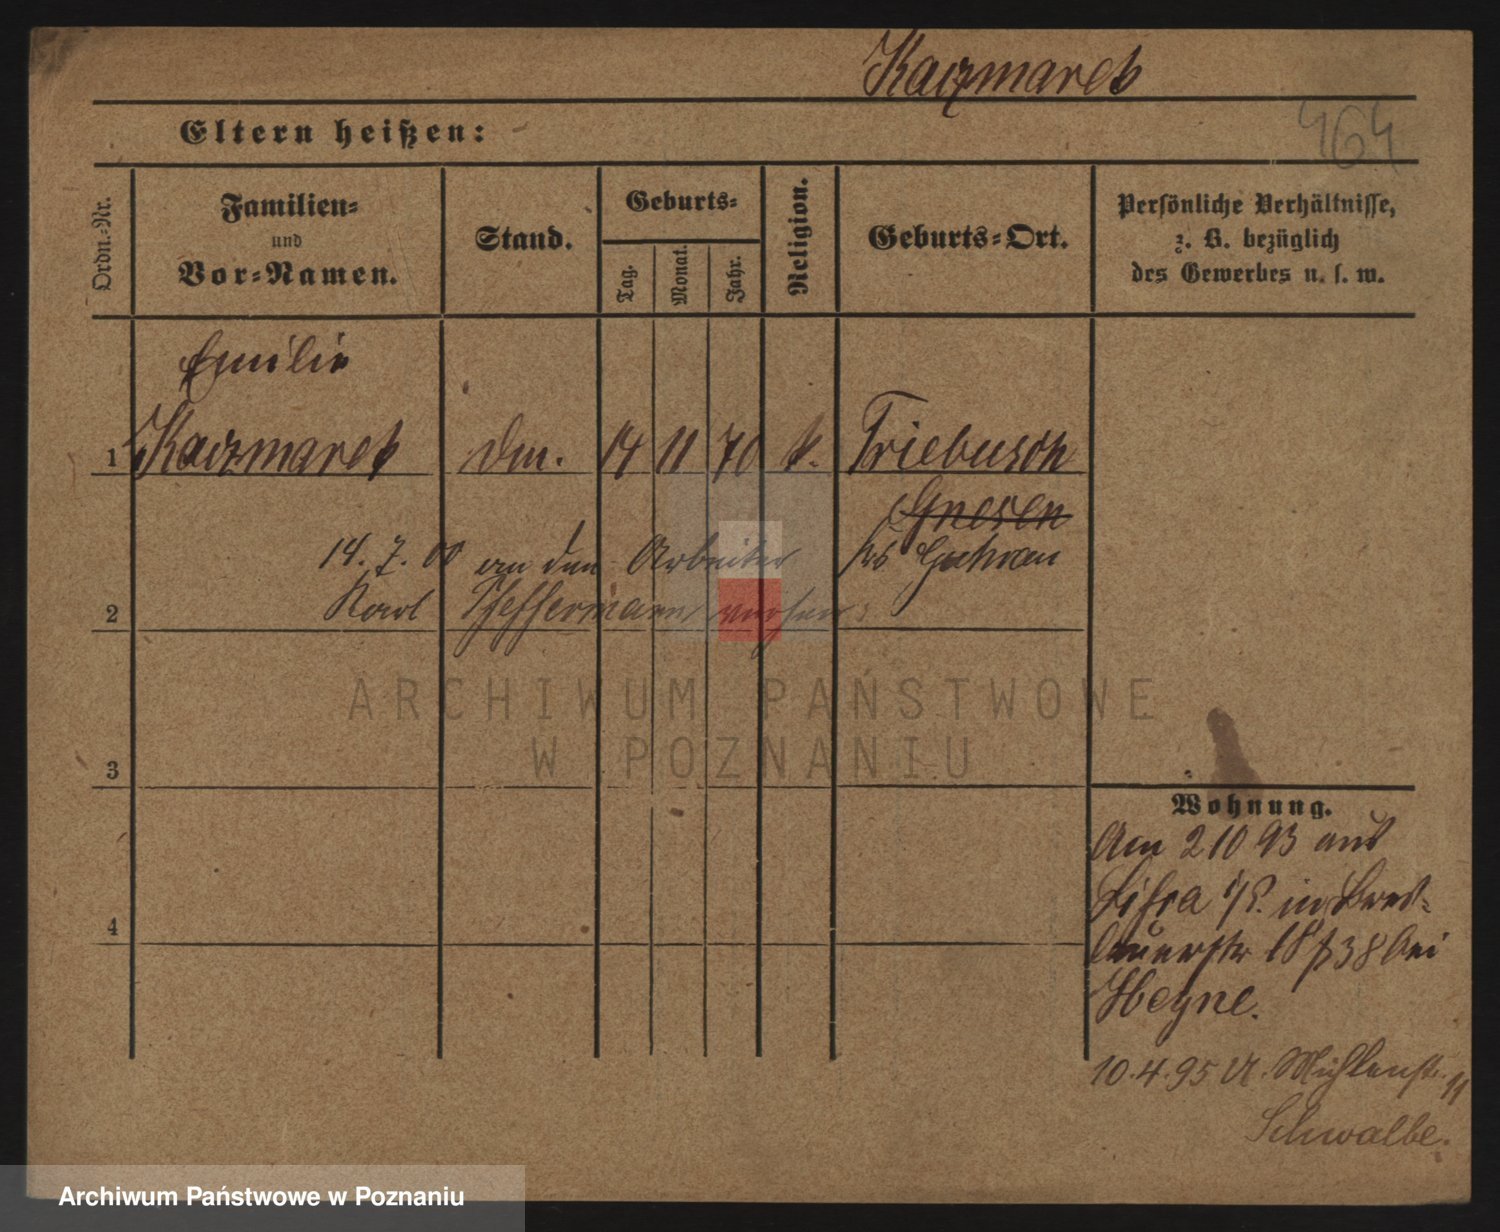 Kaczmarek
464
Eltern heißen:
Ordn.-Nr.
Familien-
und
Vor-Namen.
Stand.
Geburts-
Tag.
Monat.
Jahr.
Religion.
Geburts-Ort.
Persönliche Verhältnisse,
z. B. bezüglich
des Gewerbes u. s. w.
Emilie
1 Kaczmarek 14 11 70 k. Triebusch
Gnesen
14. 7. 00 an den Arbeiter Krs Guhrau
2 Karl
ARCHIWUM PAŃSTWOWE
W POZNANIU
3
Wohnung.
Am 2 10 93 aus
Lissa i/P. in Bres-
lauerstr 18 bei
Heyne.
4
10.4.95 U. Mühlenstr. 11
Schwalbe.
Archiwum Państwowe w Poznaniu